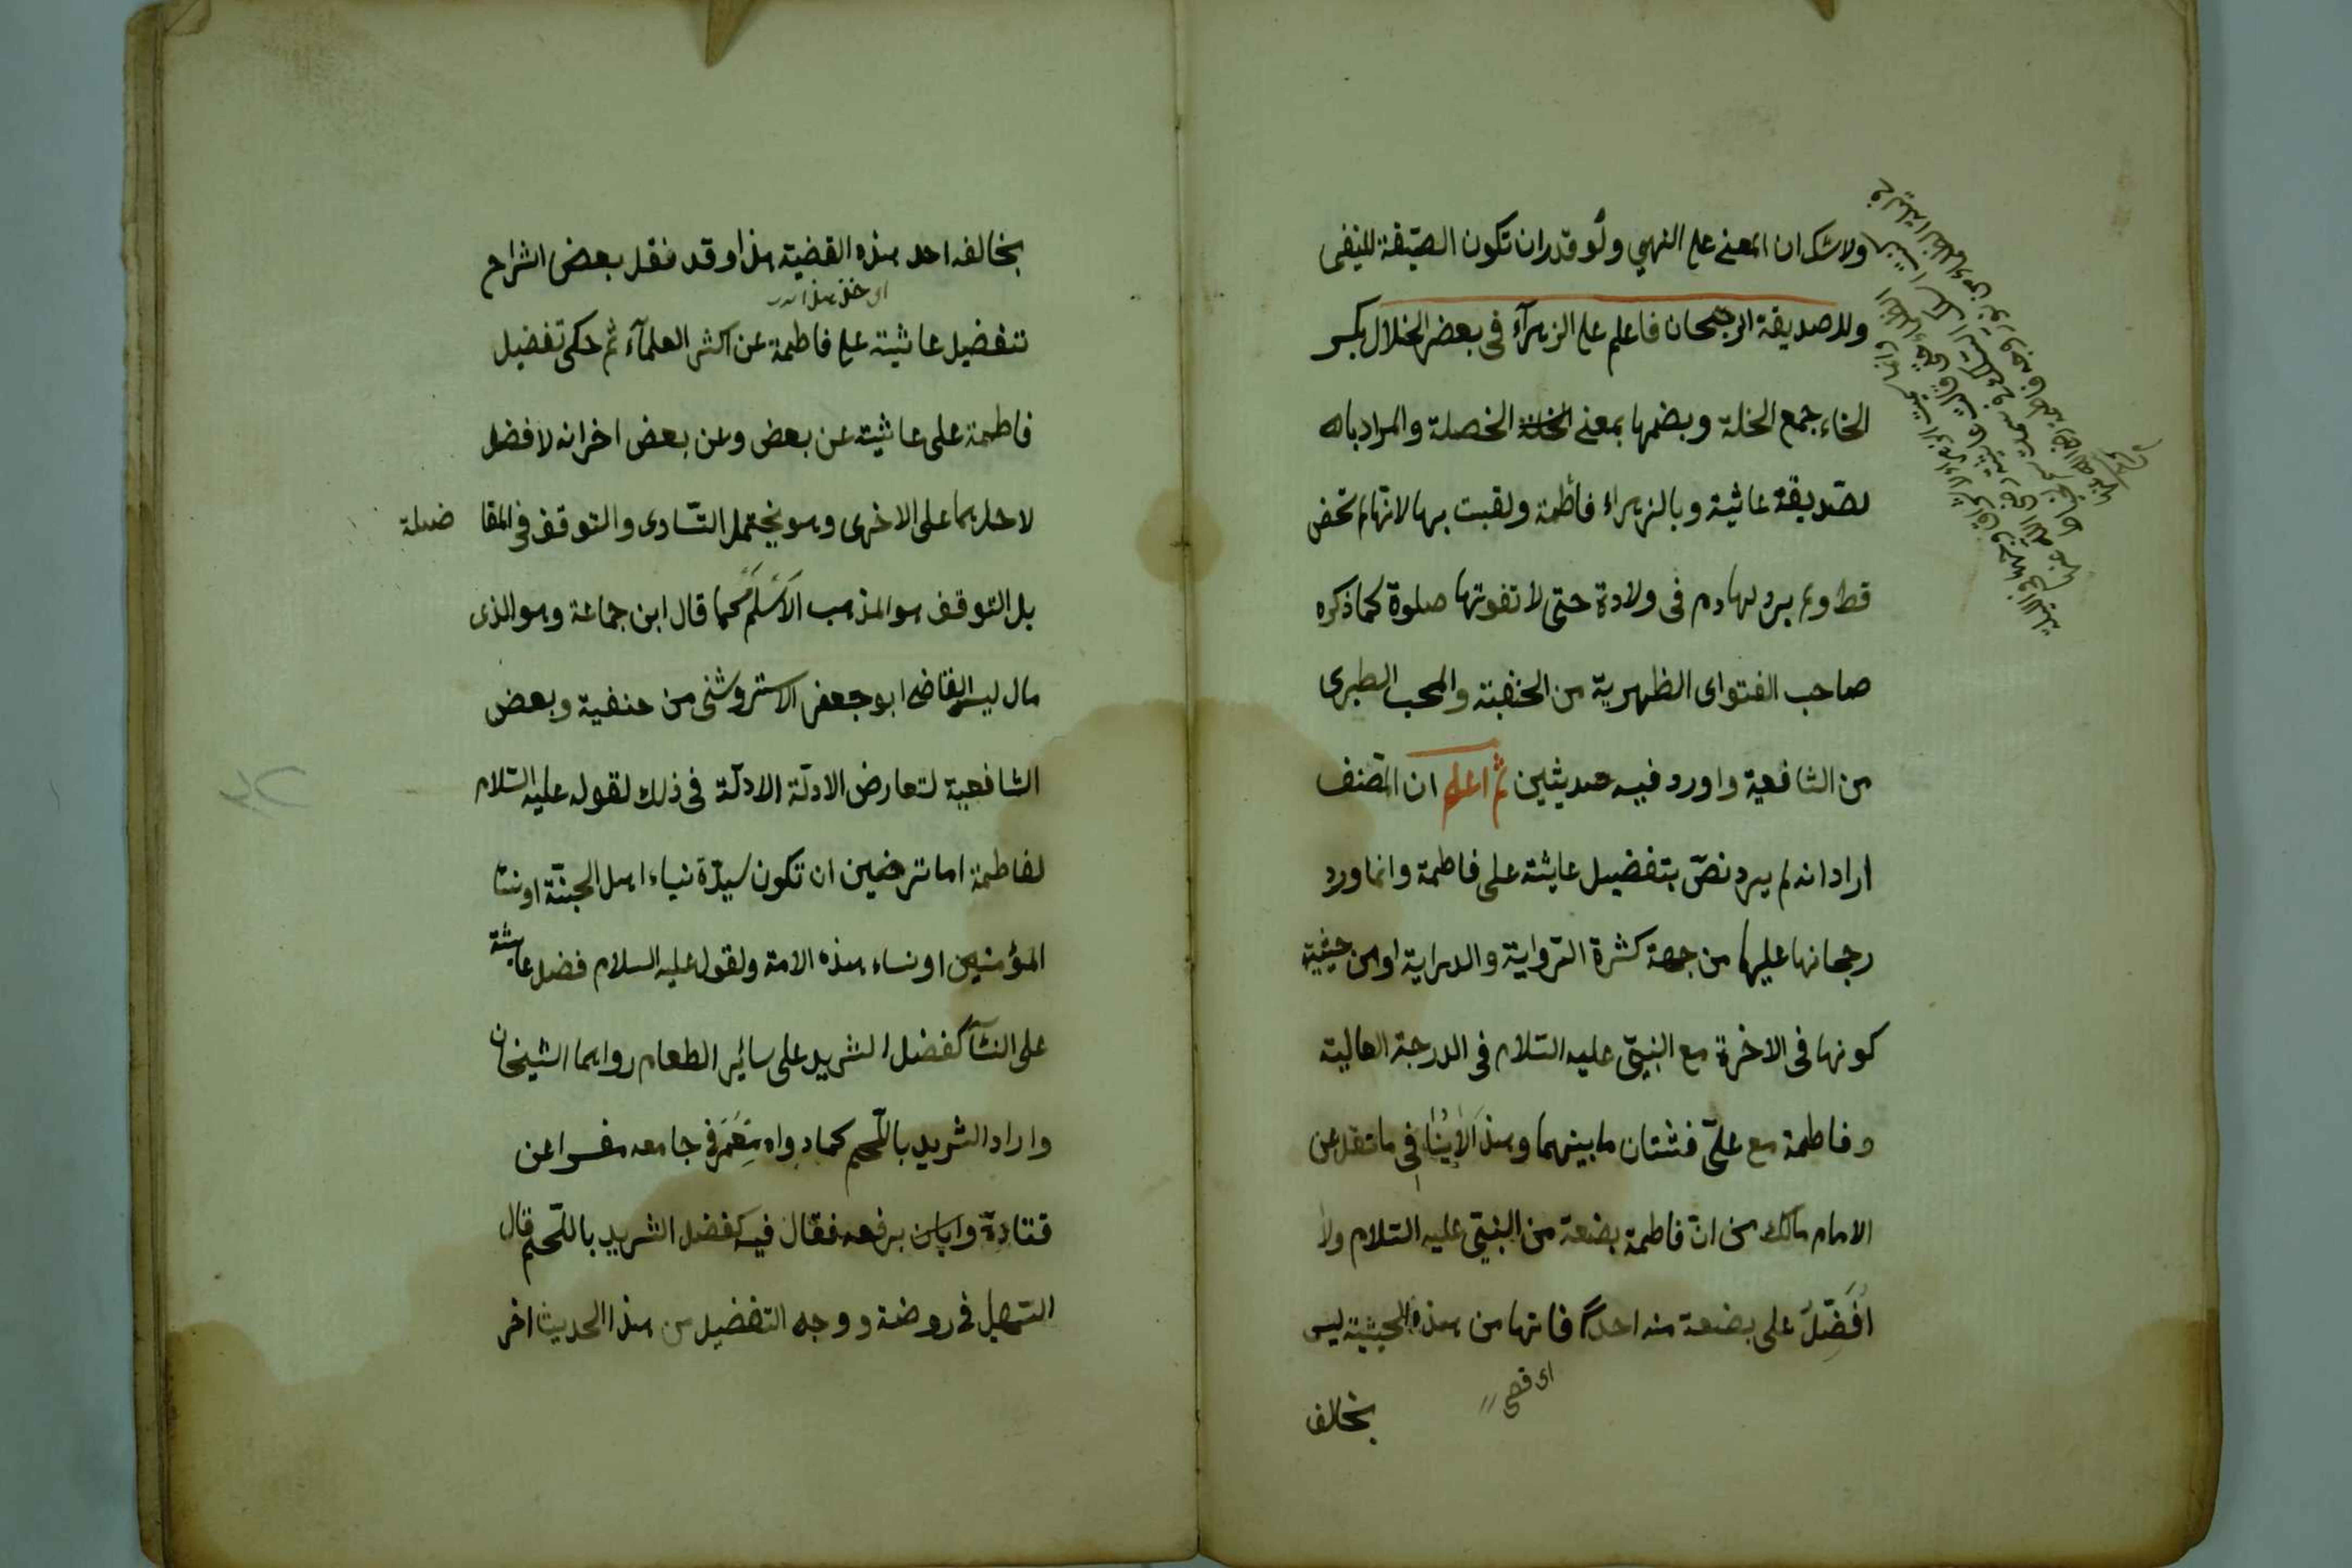 ولا شك ان المعنے علی النهي ولو قدر ان تكون الصيّغة للنفی
وللصديقة الرجحان فاعلم علی الزهرآء فی بعض الخلال بكسر
الخاء جمع الخلة وبضمها بمعنے الخصلة والمراد بال
لصّديقة عائشة وبالزهراء فاطمة ولقبت بها لانّها لم تحض
قط ولم ير لها دم فى ولادة حتى لا تفوتها صلوة كما ذكره
صاحب الفتواى الظهيرية من الحنفية والمحب الطبرى
من الشافعية واورد فيه حديثين ثم اعلم ان المصّنف
اراد انه لم يرد نصّ بتفضيل عايشة على فاطمة وانما ورد
رجحانها عليها من جهة كثرة الرّواية والدراية او من حيثية
كونها فى الاخرة مع النبىّ عليه السّلام فى الدرجة العالية
وفاطمة مع علىّ فشتان ما بينهما وهذا لا ينافى ما نقل عن
الامام مالك من انّ فاطمة بضعة من النبىّ عليه السّلام ولا
اُفَضِّلُ على بضعة منه احداً فانها من هذه الحيثية ليس
اى قصى
بخالف
بخالفه احد هذه القضية هذا وقد نقل بعض الشراح
اى خذ هذا
تفضيل عائشة علی فاطمة عن اكثر العلمآء ثم حكى تفضيل
فاطمة على عائشة عن بعض وعن بعض اخر انه لا فضل
لاحديهما على الاخرى وهو يحتمل التّساوى والتوقف فى المفا ضلة
بل التوقف هو المذهب الاَسْلَم كما قال ابن جماعة وهو الذى
مال اليه القاضى ابو جعفر الاستروشنى من حنفية وبعض
الشافعية لتعارض الادلّة الادلّة فى ذلك لقوله عليه السّلام
لفاطمة اما ترضين ان تكون سيدّة نساء اهل الجنّة او نسا
المؤمنين او نساء هذه الامة ولقوله عليه السلام فضل عايشة
على النسآ كفضل الثريد على سائر الطعام رواهما الشيخان
واراد الثريد باللّحم كما رواه مَعْمَر فى جامعه مفسرا عن
قتادة وابان يرفعه فقال فيه كفضل الثريد باللّحم قال
السّهيل فى روضة ووجه التفضيل من هذا الحديث اخر